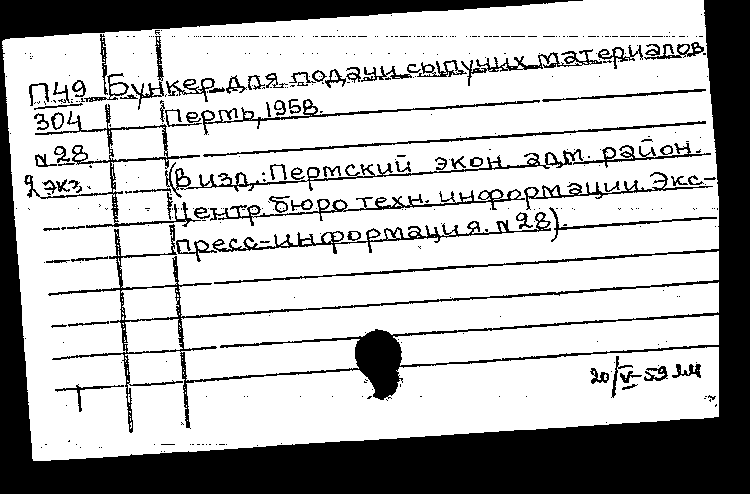 П49 Бункер для подачи сыпучих материалов
304 Пермь, 1958.
n28
2 экз. (В изд.: Пермский экон. адм. район.
Центр. бюро техн. информации. Экс-
пресс-информация. n28).
20/V-59